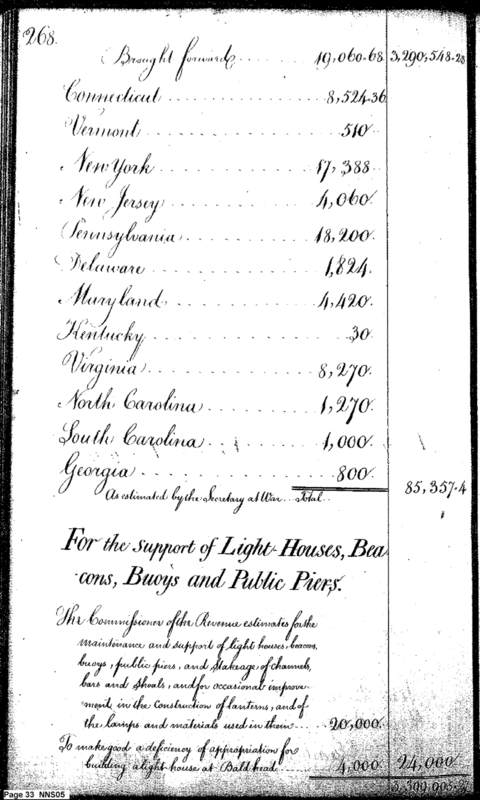 268.
Brought forward ........ 19,060.68 3,290,548.28
Connecticut ............ 8,524.36
Vermont ............ 510.
New York ............ 17,388.
New Jersey ............ 4,060.
Pennsylvania ............ 18,200.
Delaware ............ 1,824.
Maryland ............ 4,420.
Kentucky ............ 30.
Virginia ............ 8,270.
North Carolina ............ 1,270.
South Carolina ............ 1,000.
Georgia ............ 800.
As estimated by the Secretary at War... Total... 85,357.4
For the support of Light-Houses, Bea
cons, Buoys and Public Piers.
The Commissioner of the Revenue estimates for the
maintenance and support of light houses, beacons,
buoys, public piers, and stakeage of channels,
bars and shoals, and for occasional improve-
ment in the construction of lanterns, and of
the lamps and materials used in them .... 20,000.
To make good a deficiency of appropriation for
building a light house at Bald head .... 4,000. 24,000
Page 33 NNS05